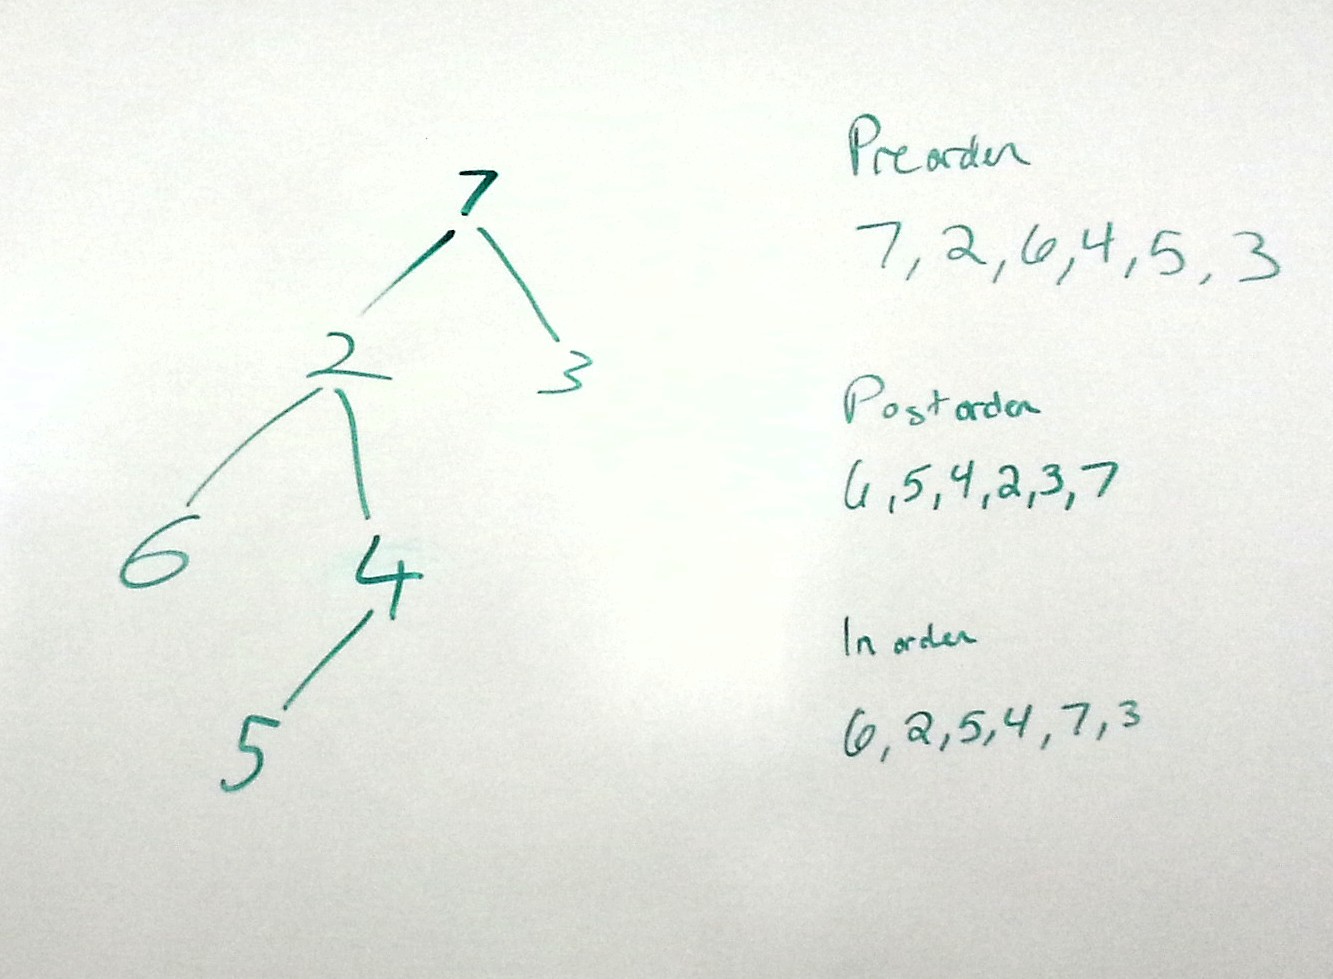 7
2
3
6
4
5
Preorder
7, 2, 6, 4, 5, 3
Postorder
6, 5, 4, 2, 3, 7
In order
6, 2, 5, 4, 7, 3